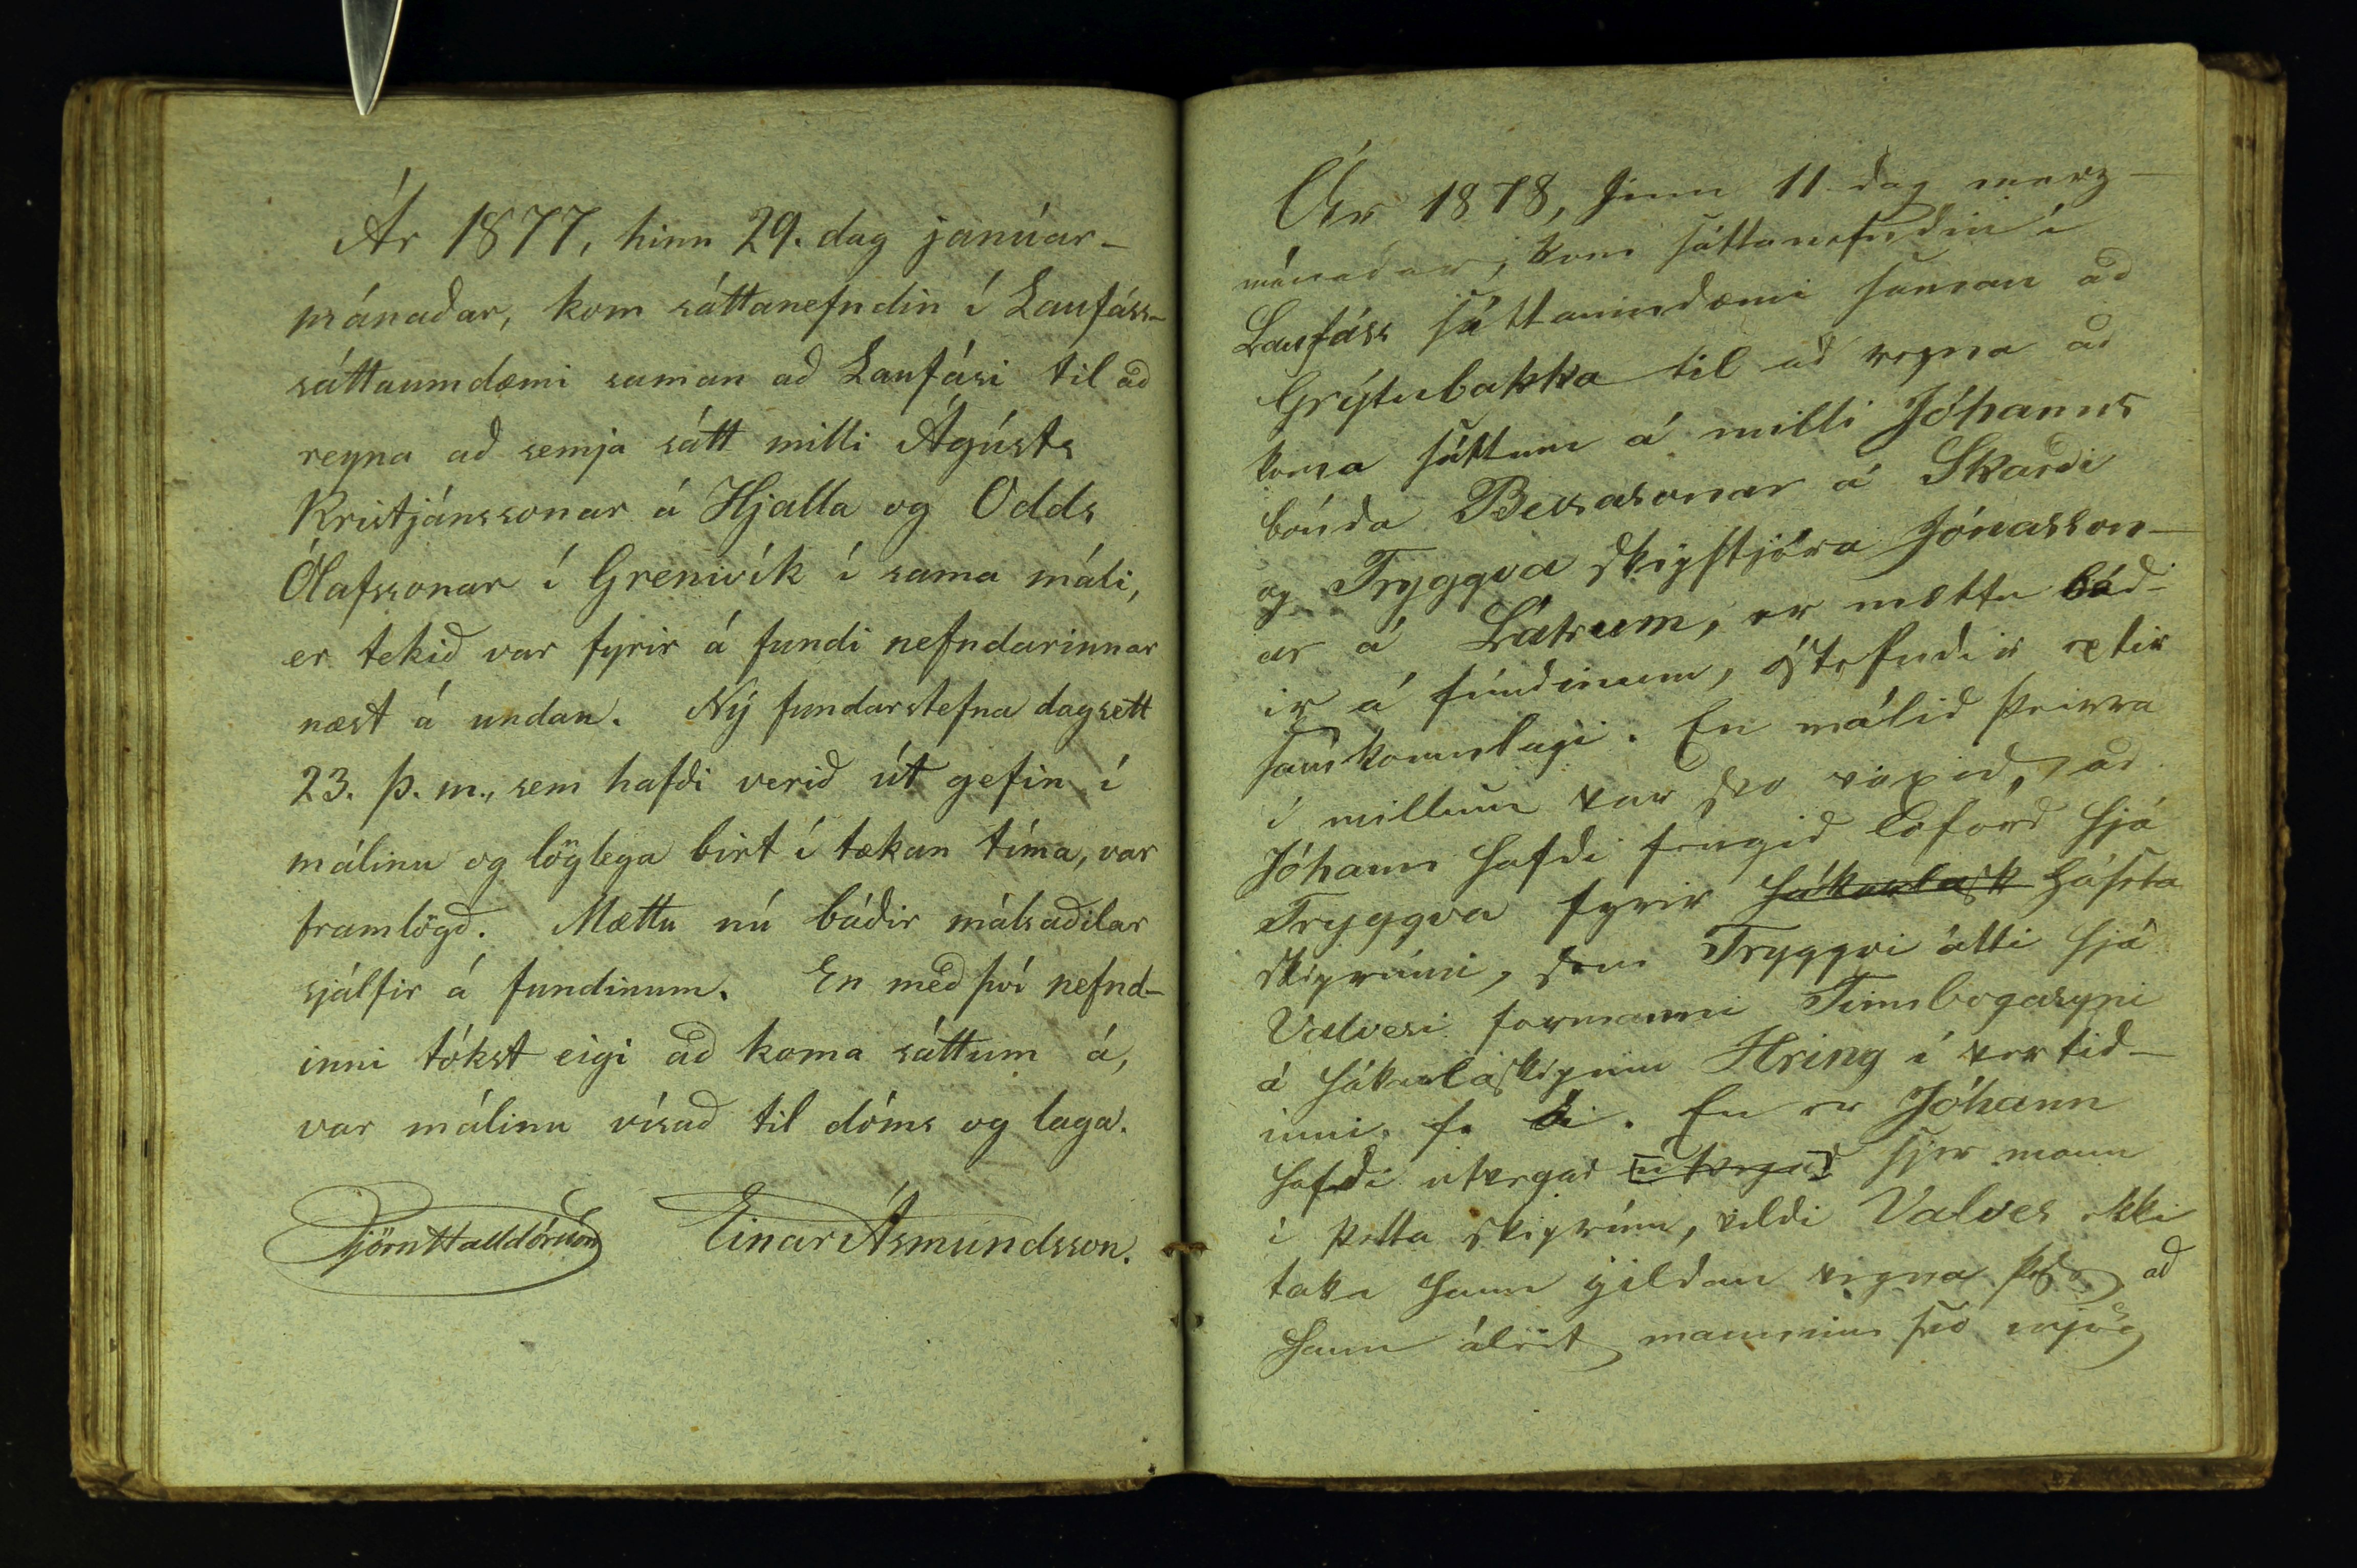 Ár 1877, hinn 29. dag janúar-
mánaðar, kom sáttanefndin í Laufáss-
sáttaumdæmi saman að Laufási til að
reyna að semja sátt milli Ágústs
Kristjánssonar á Hjalla og Odds
Ólafssonar í Grenivík í sama máli,
er tekið var fyrir á fundi nefndarinnar
næst á undan. Ný fundarstefna dagsett
23. þ. m., sem hafði verið út gefin í
málinu og löglega birt í tækan tíma, var
framlögð. Mættu nú báðir málsaðilar
sjálfir á fundinum. En með því nefnd-
inni tókst eigi að koma sáttum á,
var málinu vísað til dóms og laga.
Björn Halldórsson Einar Ásmundsson.
Ár 1878, hinn 11 dag marz-
mánaðar, kom sáttanefndin í
Laufáss sáttaumdæmi saman að
Grýtubakka til að reyna að
koma sáttum á milli Jóhanns
bónda Bessasonar á Skarði
og Tryggva skipstjóra Jónasson-
ar á Látrum, er mættu báð-
ir á fundinum, óstefndir eptir
samkomulagi. En málið þeirra
í millum var svo vaxið, að
Jóhann hafði fengið loforð hjá
Tryggva fyrir hákarlask háseta
skiprúmi, sem Tryggvi átti hjá
Valvesi formanni Finnbogasyni
á hákarlaskipinu Hring í vertíð-
inni f. á. En er Jóhann
hafði útvegað [útvegað] sjer mann
í þetta skiprúm, vildi Valves ekki
taka hann gildan vegna þess, að
hann áleit manninn svo mjög